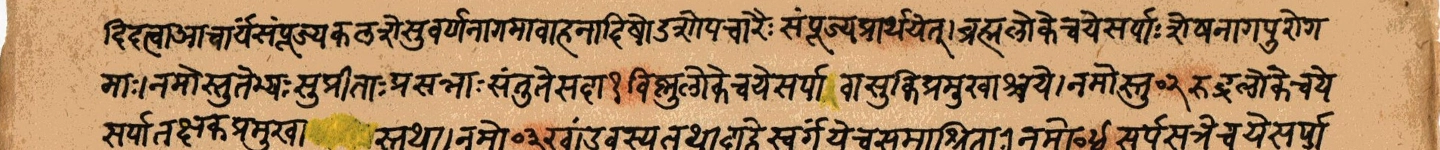 दिदत्वाआचार्यंसंपूज्यकलशेसुवर्णनागमावाहनादिषोडशोपचारैः संपूज्यप्रार्थयेत्।ब्रह्मलोकेचयेसर्पाःशेषनागपुरोग
माः।नमोस्तुतेभ्यःसुप्रीताःप्रसन्नाःसंतुतेसदा१विष्णुलोकेचयेसर्पा वासुकिप्रमुखाश्चये।नमोस्तु०२रुद्रलोकेचये
सर्पातक्षकप्रमुखा स्तथा।नमो०३खांडवस्यतथादाहेस्वर्गंयेचसमाश्रिताः।नमो०४सर्पसत्रेचयेसर्पा